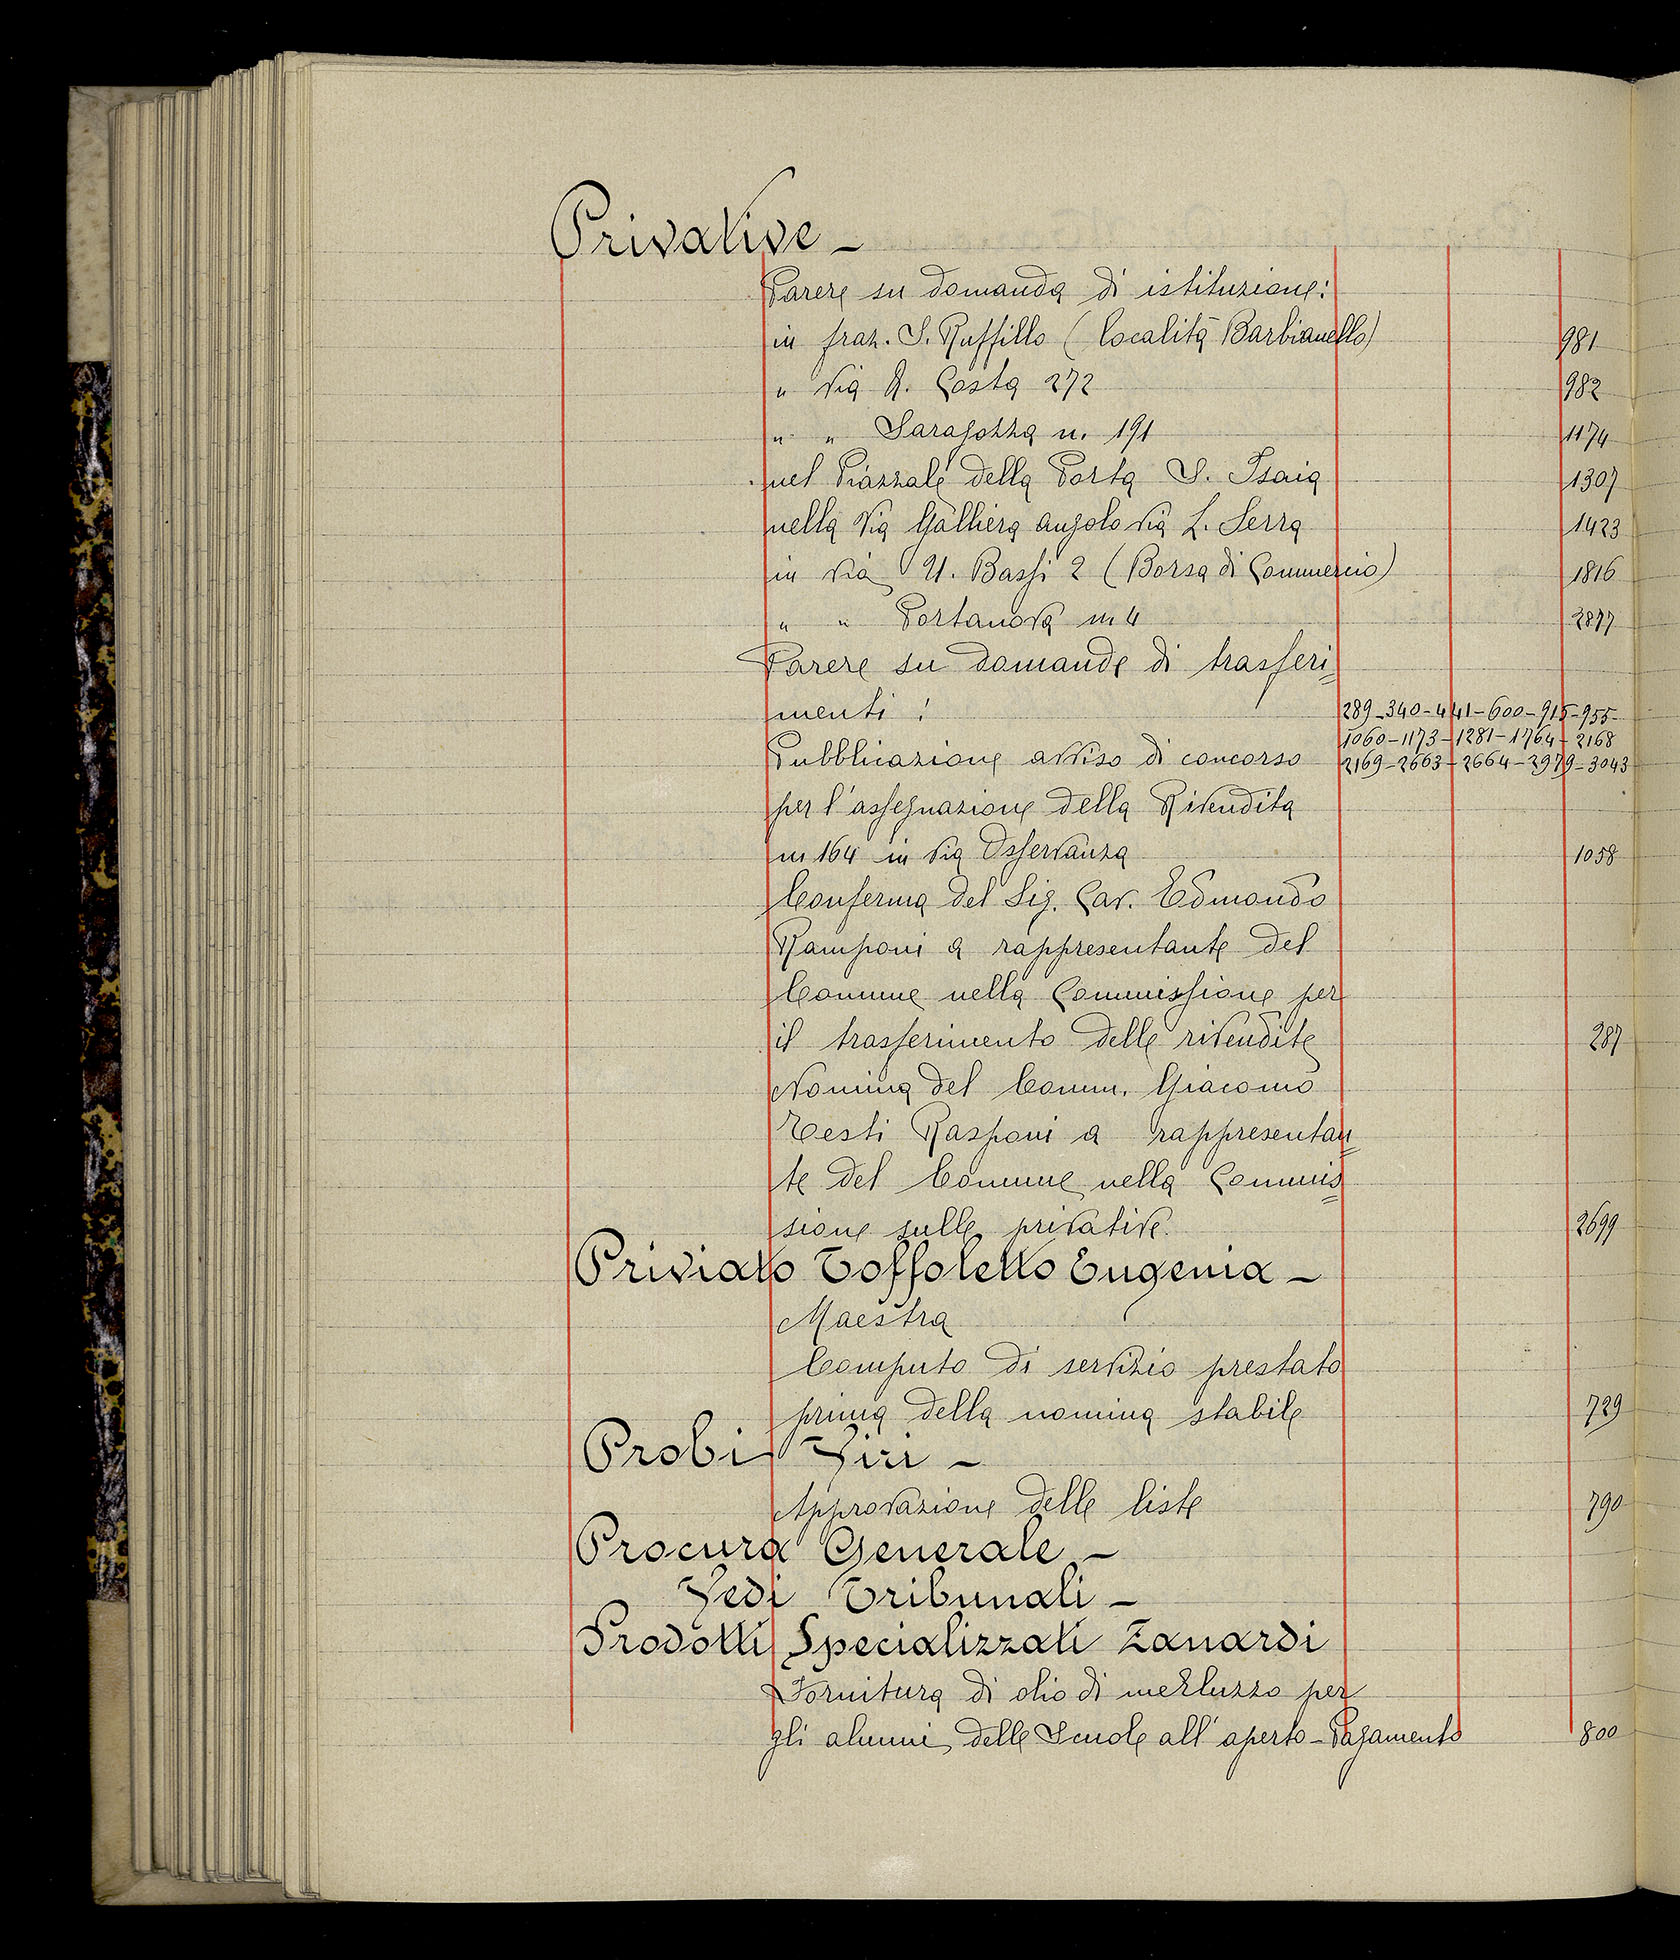 Privative -
Parere su domanda di istituzione:
in fraz. S. Ruffillo (località Barbianello) 981
" Via A. Costa 272 982
" " Saragozza n. 191 1174
nel Piazzale della Porta S. Isaia 1307
nella Via Galliera angolo Via L. Serra 1423
in Via U. Bassi 2 (Borsa di Commercio) 1816
" " Portanova n 4 2877
Parere su domande di trasferi=
menti: 289-340-441-600-915-955-
1060-1173-1281-1764-2168
Pubblicazione avviso di concorso 2169-2663-2664-2979-3043
per l'assegnazione della Rivendita
n 164 in Via Osservanza 1058
Conferma del Sig. Cav. Edmondo
Ramponi a rappresentante del
Comune nella Commissione per
il trasferimento delle rivendite 287
Nomina del Comm. Giacomo
Testi Rasponi a rappresentan=
te del Comune nella Commis=
sione sulle privative. 2699
Priviato Toffoletto Eugenia -
Maestra
Computo di servizio prestato
prima della nomina stabile 729
Probi Viri -
Approvazione delle liste 790
Procura Generale -
Vedi Tribunali -
Prodotti Specializzati Zanardi
Fornitura di olio di merluzzo per
gli alunni delle Scuole all'aperto - Pagamento 800